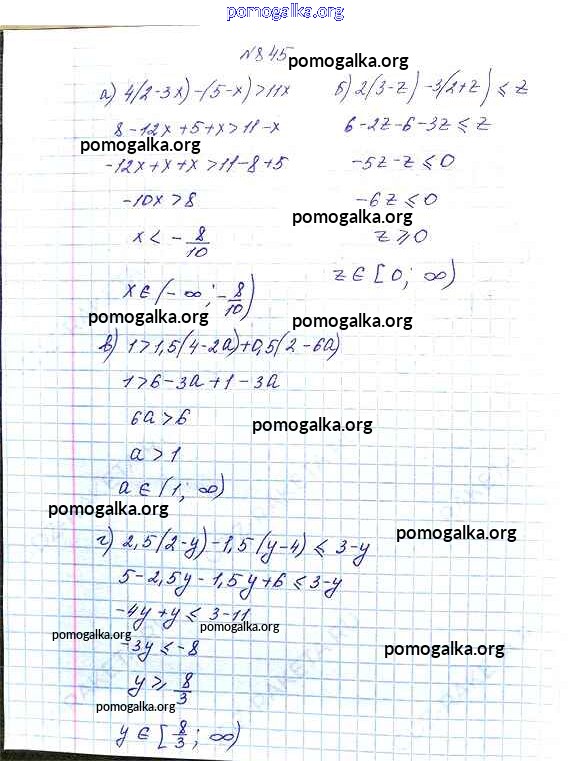 pomogalka.org
№845
pomogalka.org
а) 4(2-3x)-(5-x)>11x
8-12x+5+x>11-x
pomogalka.org
-12x+x+x>11-8+5
-10x>8
x<-8/10
x∈(-∞;-8/10)
б) 2(3-z)-3(2+z)≤z
6-2z-6-3z≤z
-5z-z≤0
-6z≤0
pomogalka.org
z≥0
z∈[0; ∞)
pomogalka.org
pomogalka.org
в) 1>1,5(4-2a)+0,5(2-6a)
1>6-3a+1-3a
6a>6
pomogalka.org
a>1
a∈(1; ∞)
pomogalka.org
pomogalka.org
г) 2,5(2-y)-1,5(y-4)≤3-y
5-2,5y-1,5y+6≤3-y
-4y+y≤3-11
pomogalka.org
pomogalka.org
-3y≤-8
pomogalka.org
y≥8/3
pomogalka.org
y∈[8/3; ∞)